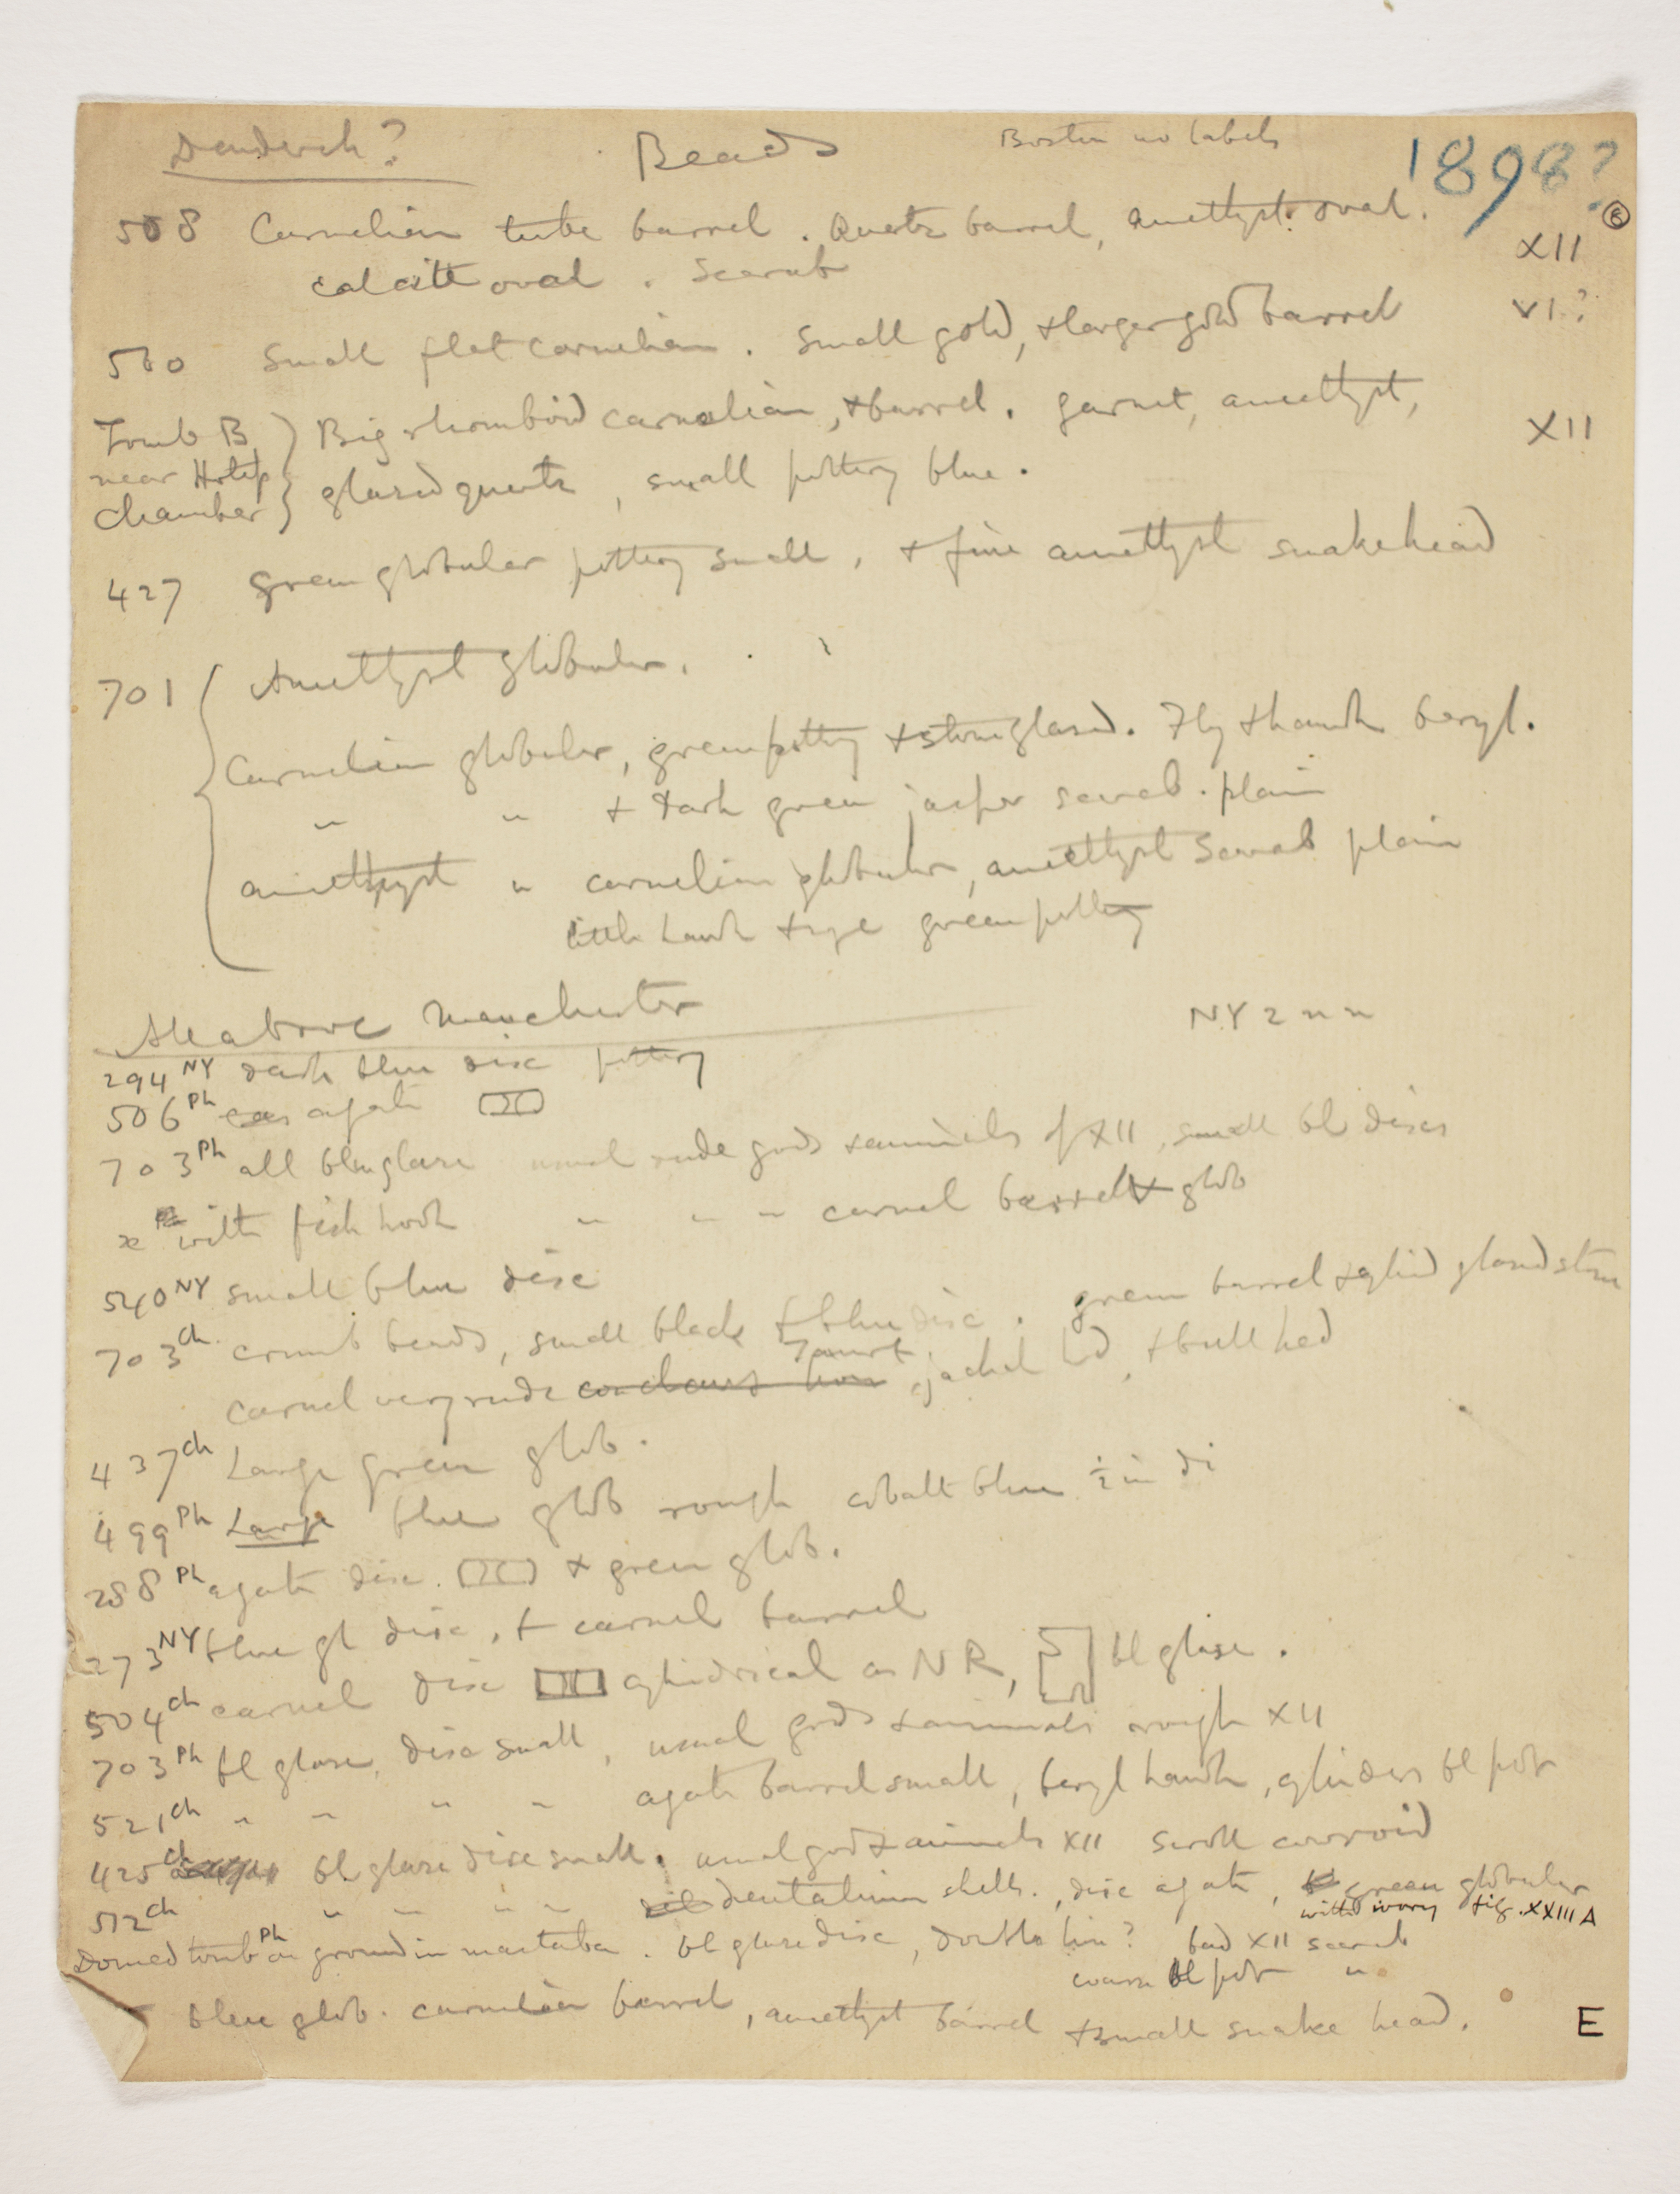 Dendereh? Beads Boston no labels 1898?
508 Carnelian tube barrel. Quartz barrel, amethyst oval. XII
calcite oval. Scarab
560 Small flat carnelian. Small gold, + larger gold barrel VI?
Tomb B Big rhomboid carnelian, + barrel. garnet, amethyst, XII
near Hotep glazed quartz, small pottery blue.
chamber
427 green globular pottery small, + fine amethyst snakehead
701 Amethyst globular.
Carnelian globular, green pottery + stone glazed. Fly + hawk beryl.
" " + dark green jasper scarab. plain
amethyst " carnelian globular, amethyst scarab plain
little hawk + eye green pottery
All above Manchester NY 2 " "
294 NY dark blue disc pottery
506 Ph agate
703 Ph all blue glaze usual rude gods + animals of XII, small bl discs
x with fish hook " " " carnel barrel + glob
540 NY small blue disc
703 Ch crumb beads, small black + blue disc. green barrel + cylind glazed stone
carnel very rude Taurt, jackal hd, + bull hed
437 Ch Large green glob.
499 Ph Large blue glob rough cobalt blue ½ in di
288 Ph agate disc. + green glob.
273 NY blue gl disc, + carnel barrel
504 Ch carnel disc cylindrical as NR, bl glaze.
703 Ph bl glaze, disc small, usual gods + animals rough XII
521 Ch " " " " agate barrel small, beryl hawk, cylinders bl pot
425 Ch bl glaze disc small. usual gods + animals XII scroll cowroid
512 Ch " " " " dentalium shells., disc agate, green globular
with ivory fig. XXIII A
Domed tomb Ph on ground in mastaba. bl glaze disc, double lion? bad XII scarab
coarse bl pot "
blue glob. carnelian barrel, amethyst barrel + small snake head. E